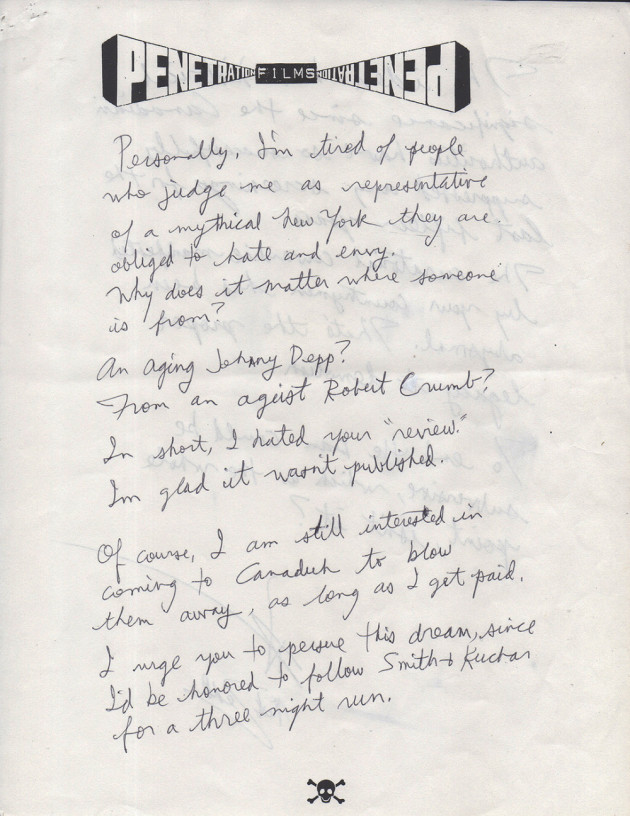 PENETRATION FILMS PENETRATION
Personally, I'm tired of people
who judge me as representative
of a mythical New York they are
obliged to hate and envy.
Why does it matter where someone
is from?
An aging Johnny Depp?
From an ageist Robert Crumb?
In short, I hated your "review."
I'm glad it wasn't published.
Of course, I am still interested in
coming to Canaduh to blow
them away, as long as I get paid.
I urge you to persue this dream, since
I'd be honored to follow Smith + Kuchar
for a three night run.